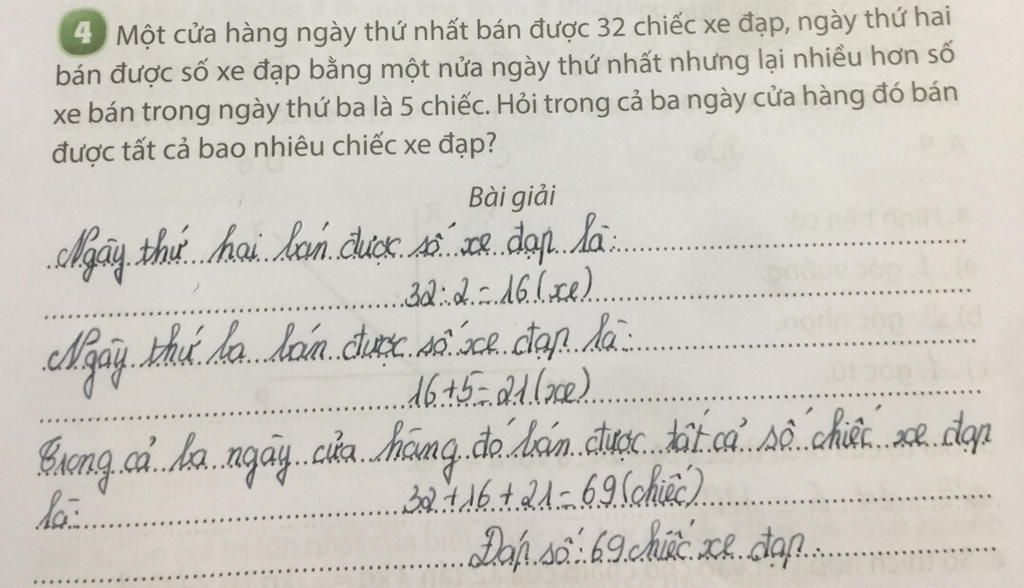 4 Một cửa hàng ngày thứ nhất bán được 32 chiếc xe đạp, ngày thứ hai
bán được số xe đạp bằng một nửa ngày thứ nhất nhưng lại nhiều hơn số
xe bán trong ngày thứ ba là 5 chiếc. Hỏi trong cả ba ngày cửa hàng đó bán
được tất cả bao nhiêu chiếc xe đạp?
Bài giải
Ngày thứ hai bán được số xe đạp là:
32 : 2 = 16 (xe)
Ngày thứ ba bán được số xe đạp là:
16 + 5 = 21 (xe)
Trong cả ba ngày cửa hàng đó bán được tất cả số chiếc xe đạp
là: 32 + 16 + 21 = 69 (chiếc)
Đáp số: 69 chiếc xe đạp